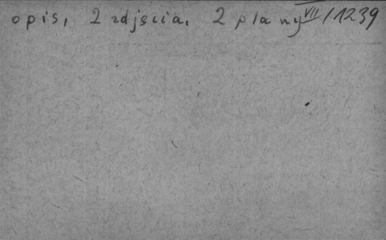 opis, 2 zdjęcia, 2 plany VII/1239